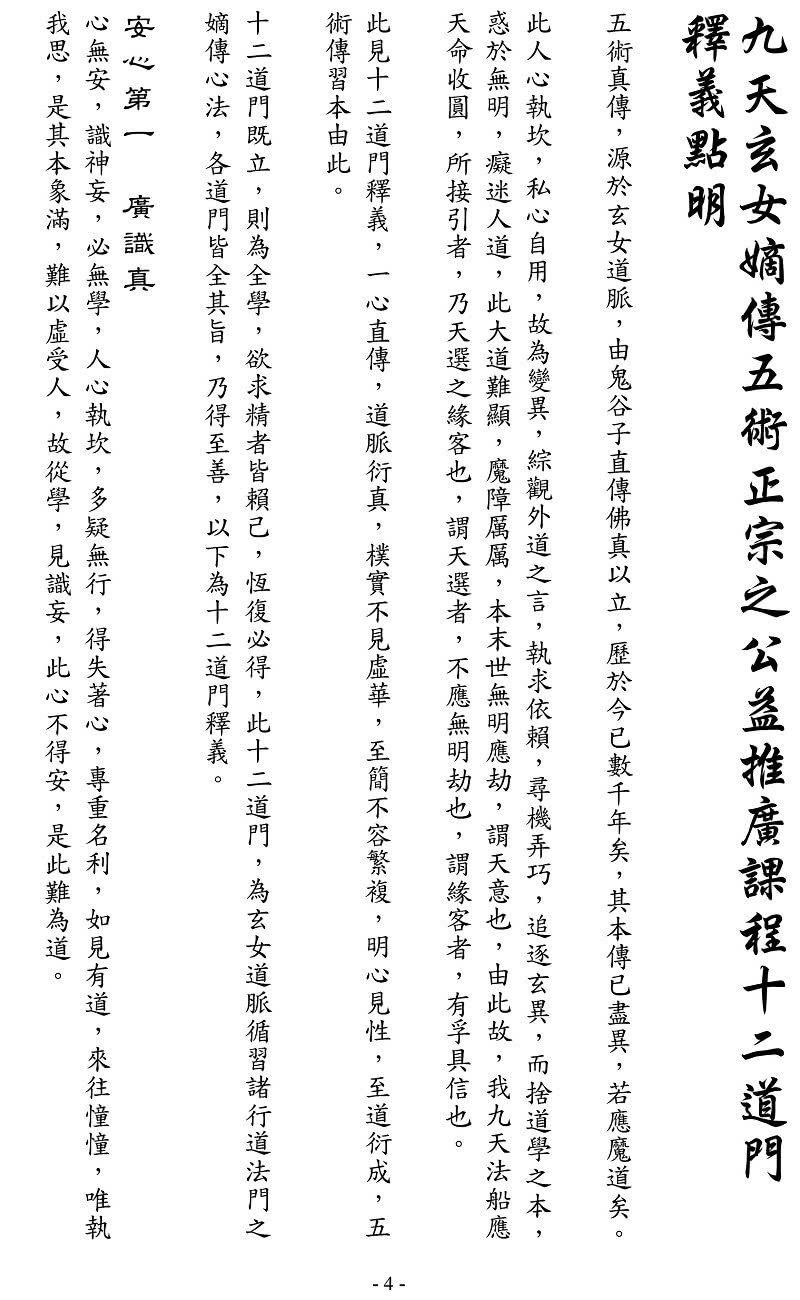 九天玄女嫡傳五術正宗之公益推廣課程十二道門
釋義點明
五術真傳，源於玄女道脈，由鬼谷子直傳佛真以立，歷於今已數千年矣，其本傳已盡異，若應魔道矣。
此人心執坎，私心自用，故為變異，綜觀外道之言，執求依賴，尋機弄巧，追逐玄異，而捨道學之本，
惑於無明，癡迷人道，此大道難顯，魔障厲厲，本末世無明應劫，謂天意也，由此故，我九天法船應
天命收圓，所接引者，乃天選之緣客也，謂天選者，不應無明劫也，謂緣客者，有孚具信也。
此見十二道門釋義，一心直傳，道脈衍真，樸實不見虛華，至簡不容繁複，明心見性，至道衍成，五
術傳習本由此。
十二道門既立，則為全學，欲求精者皆賴己，恆復必得，此十二道門，為玄女道脈循習諸行道法門之
嫡傳心法，各道門皆全其旨，乃得至善，以下為十二道門釋義。
安心第一　廣識真
心無安，識神妄，必無學，人心執坎，多疑無行，得失著心，專重名利，如見有道，來往憧憧，唯執
我思，是其本象滿，難以虛受人，故從學，見識妄，此心不得安，是此難為道。
- 4 -